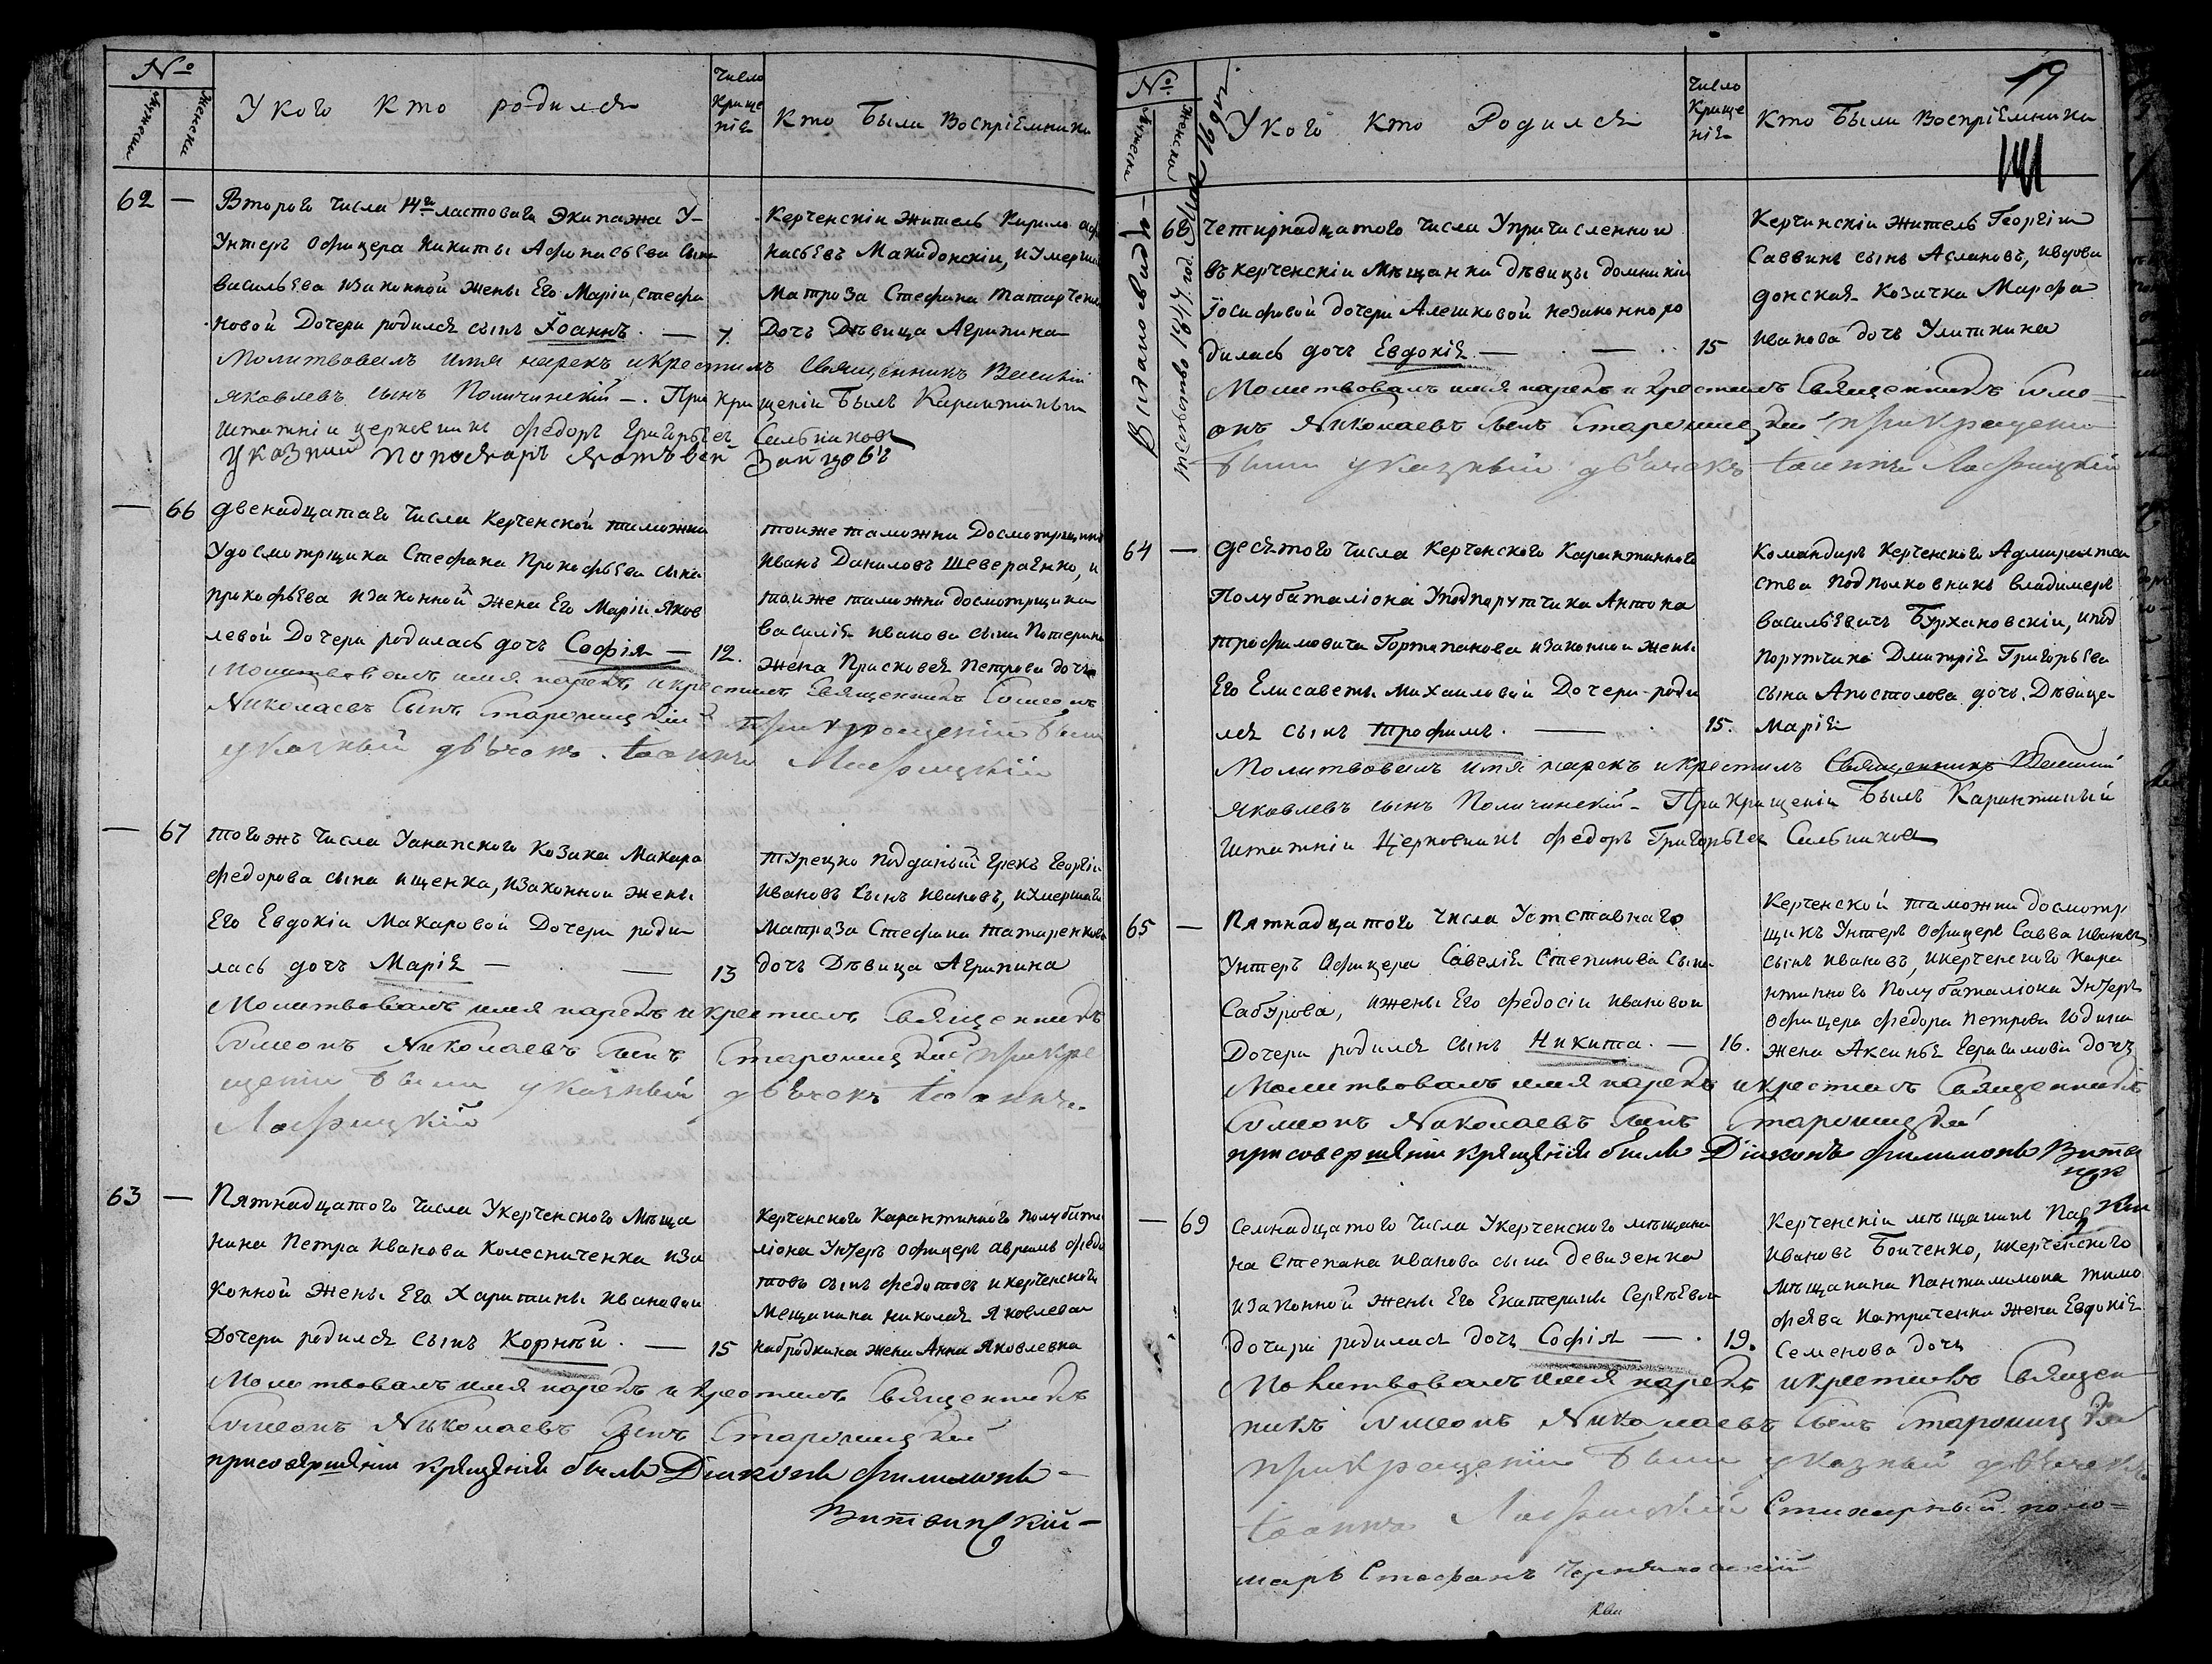 №
Мужеска
Женска
У кого кто родился
Число
Креще
нія
Кто были воспріемники
62 —
Второго числа 14го ластоваго экипажа У-
Унтеръ Офицера Никиты Афонасьева сына
Васильева изаконной жены Его Маріи, стефа
новой Дочери родился сынъ Іоаннъ. — 7.
Керченскіи житель Кирило
насьевъ Македонскіи, и Умершаго
Матроза Стефана
Дочь Дѣвица Агрипина
Молитвовалъ имя нарекъ и крестилъ Священникъ
Яковлевъ сынъ Поличинскій —. При крищеніи былъ
Штатніи церковникъ Федоръ Григорьев
Указний Пономарь
— 66
двенадцатаго числа Керченской таможни
Удосмотрщика Стефана Прокофьева сына
прокофьева изаконной жена Его Маріи Яков
левой Дочери родилась дочь Софія — 12.
тоиже таможни
Иванъ Даниловъ Шевераенко, и
тоиже таможни досмотрщика
Василія иванова сына
жена Прасковея Петрова дочь
Молитвовалъ имя нарекъ и крестилъ Священникъ Симеонъ
Николаевъ Сынъ Старомицкій. При крещеніи были
указный дьячокъ Іоаннъ
— 67
тогожъ числа Уанапского козака Макара
федорова сына ищенка, изаконнои жены
Его Евдокіи Макаровой Дочери роди
лась дочь Марія — 13
Турецко подданый грекъ Георгіи
Ивановъ Сынъ Ивановъ, и Умершаго
Матроза Стефана
дочь Дѣвица Агрипина
Молитвовалъ имя нарекъ и крестилъ Священникъ
Симеонъ Николаевъ Сынъ Старомицкій при кре
щеніи были указный дьячокъ Іоаннъ
63 —
Пятнадцатого числа Укерченского Мѣща
нина Петра Иванова Колесниченка иза
конной Жены Его Харитины Ивановои
Дочери родился сынъ Корнѣй. — 15
Керченского Карантинного полубата
ліона Унтеръ Офицеръ Аврамъ Федо
товъ сынъ Федотовъ и керченского
Мещанина николая Яковлева
жена Анна Яковлевна
Молитвовалъ имя нарекъ и крестилъ Священникъ
Симеонъ Николаевъ Сынъ Старомицкій
при совершеніи крещенія были Діяконъ Филимонъ —
Витвинскій —
19
№
Мужеска
Женска
У кого кто Родился
Число
Креще
нія
Кто были воспріемники
68
Четирнадцатого числа Упричисленнои
въ керченскіи Мѣщанки дѣвицы домникіи
Іосифовой дочери Алешковой незаконноро
дилась дочь Евдокія. — 15
Керчинскіи житель Георгіи
Саввинъ сынъ Аслановъ, ивдова
донская Козачка Марфа
Иванова дочь Улиткина
Молитвовалъ имя нарекъ и крестилъ Священникъ Симе-
онъ Николаевъ Сынъ Старомицкій при крещеніи
были указный дьячокъ Іоаннъ
64 —
десятого числа Керченского Карантинного
Полубаталіона Уподпорутчика Антона
трофимовича изаконнои жены
Его Елисаветы Михаиловой Дочери роди
лся сынъ Трофимъ. — 15.
Командиръ Керченского Адмиралтеи
ства Подполковникъ Владимеръ
Васильевичъ Бурхановскіи, ипод
порутчика Дмитрія Григорьева
сына Апостолова дочь Дѣвица
Марія
Молитвовалъ имя нарекъ и крестилъ Священникъ
Яковлевъ сынъ Поличинскій — При крищеніи былъ Карантинный
Штатніи Церковникъ Федоръ Григорьев
65 —
Пятнадцатого числа Уотставнаго
Унтеръ Офицера Савелія Степанова сына
Сабурова, ижены Его Федосіи Ивановои
Дочери родился сынъ Никита. — 16.
Керченской таможни досмотр
щикъ Унтеръ Офицеръ Савва Ивановъ
сынъ Ивановъ, икерченского Кара
нтинного Полубаталіона Унтеръ
Офицера Федора Петрова Юдина
жена Аксинья Герасимова дочь
Молитвовалъ имя нарекъ и крестилъ Священникъ
Симеонъ Николаевъ Сынъ Старомицкій
при совершеніи крещенія были Діяконъ Филимонъ Витвинскій
— 69
Семнадцатого числа Укерченского мѣщани
на Степана Иванова сына девизенка
изаконной жены Его Екатерины Сергѣевои
дочири родилася дочь Софія — 19.
Керченскіи мѣщанинъ
Ивановъ Боиченко, икерченского
мѣщанина Пантилимона Тимо
феева жена Евдокія
Семенова дочь
Молитвовалъ имя нарекъ и крестилъ Священ
никъ Симеонъ Николаевъ Сынъ Старомицкій
при крещеніи были указный дьячокъ
Іоаннъ Стихарный поно-
марь Стефанъ